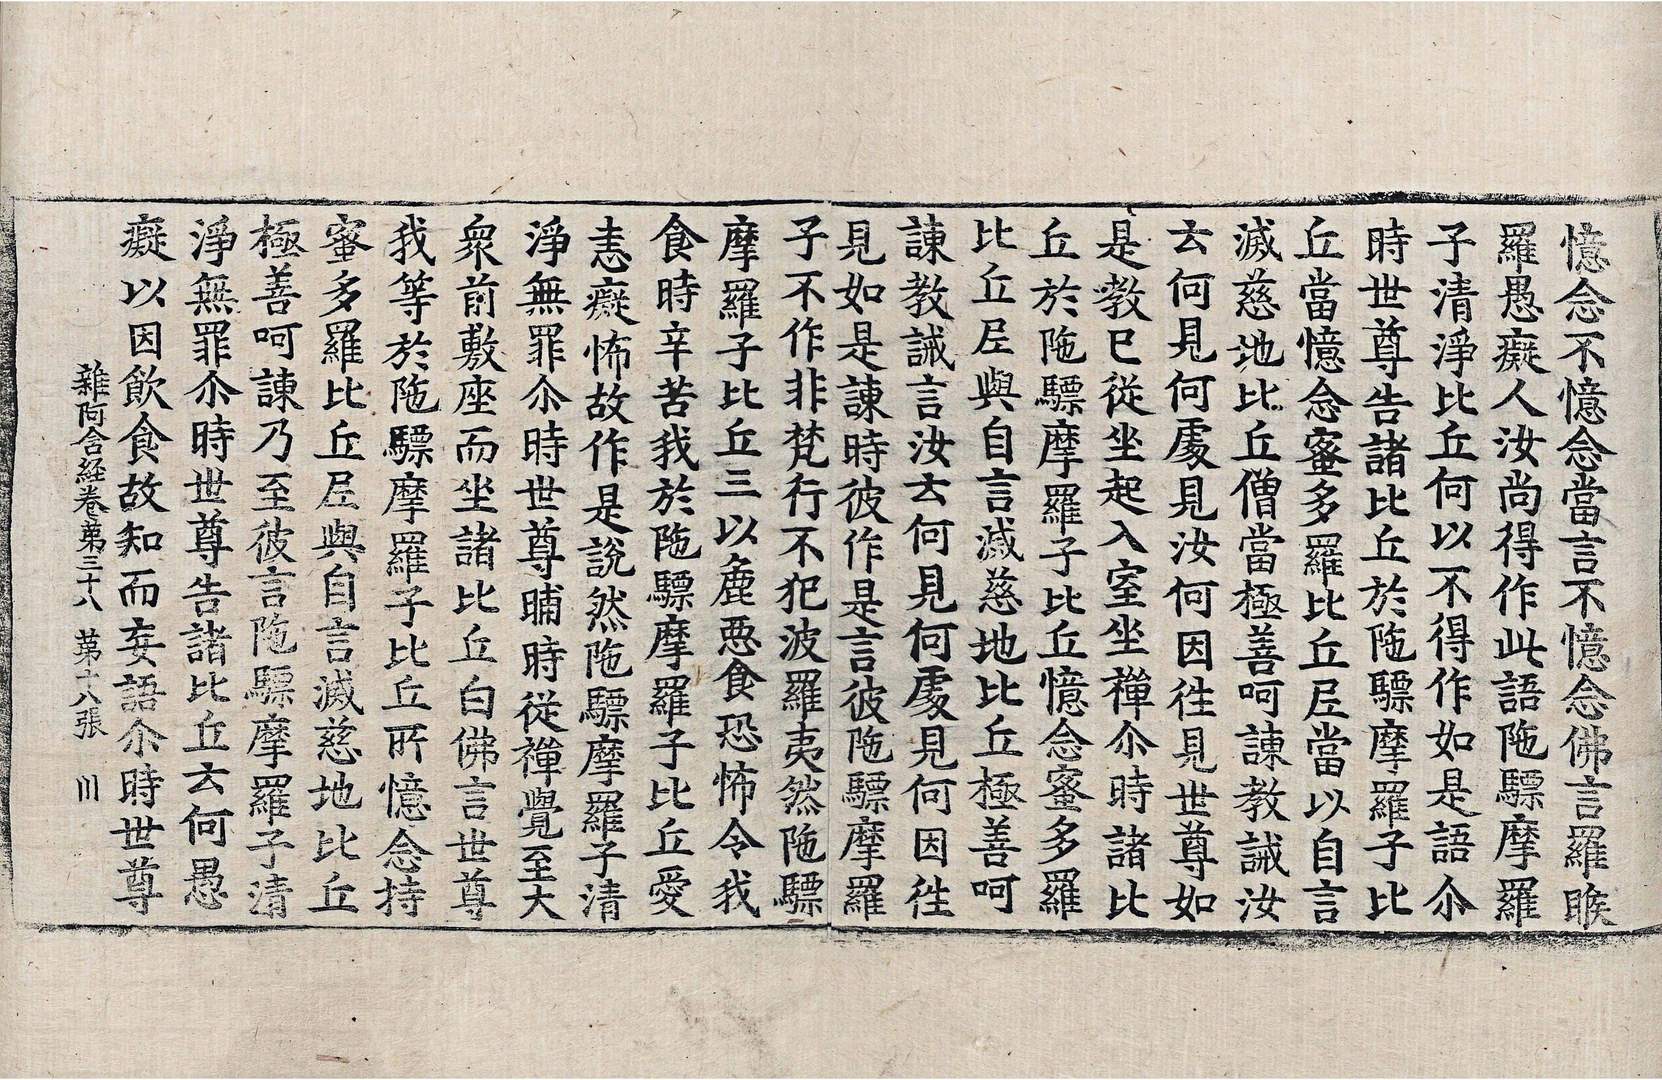 憶念不憶念當言不憶念佛言羅睺
羅愚癡人汝尚得作此語陁驃摩羅
子清淨比丘何以不得作如是語尒
時世尊告諸比丘於陁驃摩羅子比
丘當憶念蜜多羅比丘尼當以自言
滅慈地比丘僧當極善呵諫教誡汝
云何見何處見汝何因往見世尊如
是教已從坐起入室坐禪尒時諸比
丘於陁驃摩羅子比丘憶念蜜多羅
比丘尼與自言滅慈地比丘極善呵
諫教誡言汝云何見何處見何因往
見如是諫時彼作是言彼陁驃摩羅
子不作非梵行不犯波羅夷然陁驃
摩羅子比丘三以麁惡食恐怖令我
食時辛苦我於陁驃摩羅子比丘愛
恚癡怖故作是說然陁驃摩羅子清
淨無罪尒時世尊晡時從禪覺至大
衆前敷座而坐諸比丘白佛言世尊
我等於陁驃摩羅子比丘所憶念持
蜜多羅比丘尼與自言滅慈地比丘
極善呵諫乃至彼言陁驃摩羅子清
淨無罪尒時世尊告諸比丘云何愚
癡以因飮食故知而妄語尒時世尊
雜阿含經卷第三十八 第十八張 川